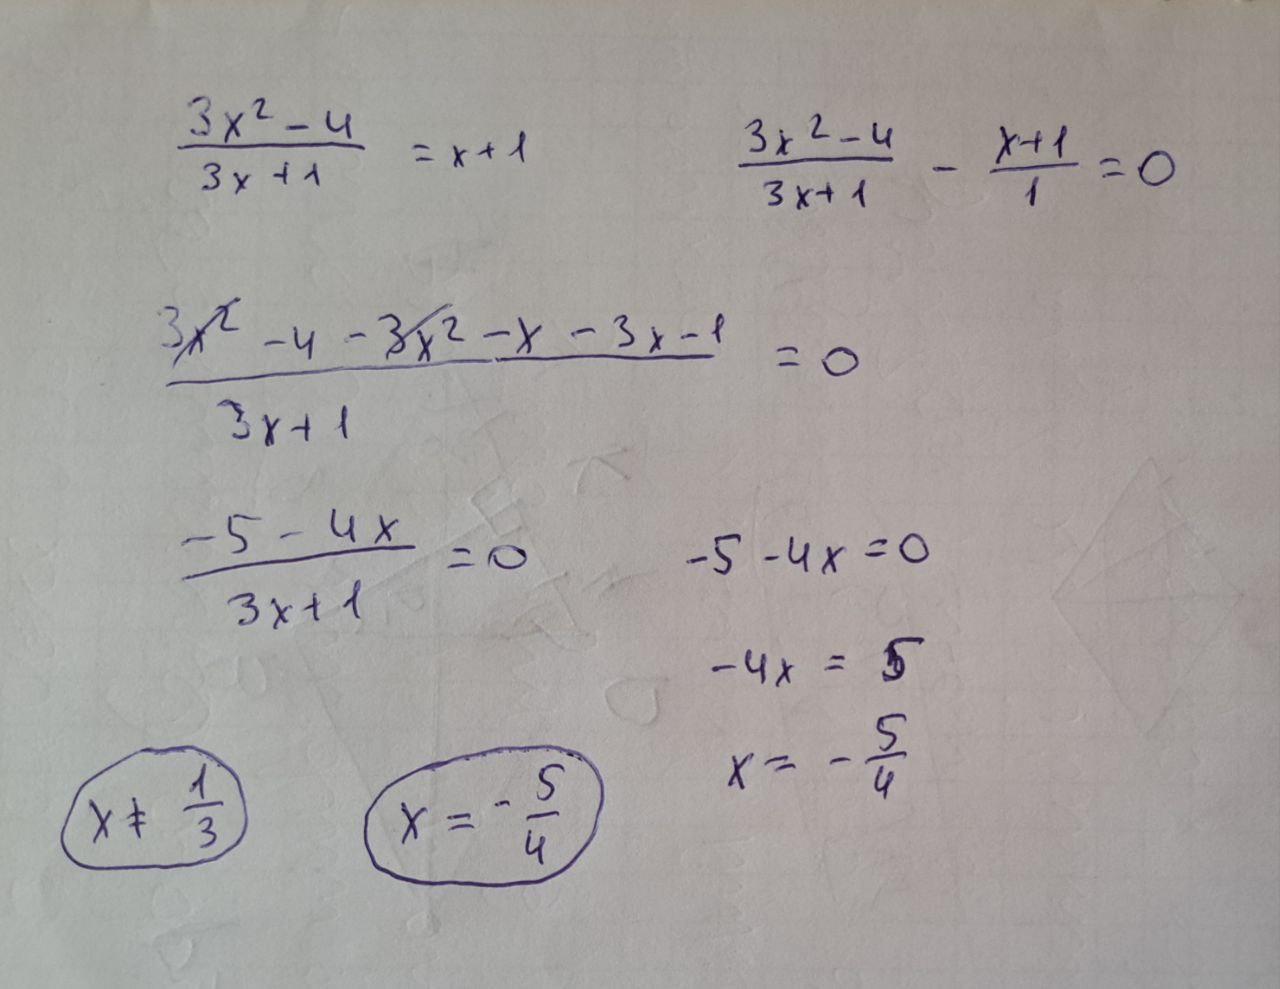 (3x² - 4)/(3x + 1) = x + 1
(3x² - 4)/(3x + 1) - (x + 1)/1 = 0
(3x² - 4 - 3x² - x - 3x - 1)/(3x + 1) = 0
(-5 - 4x)/(3x + 1) = 0
-5 - 4x = 0
-4x = 5
x = -5/4
x ≠ 1/3
x = -5/4